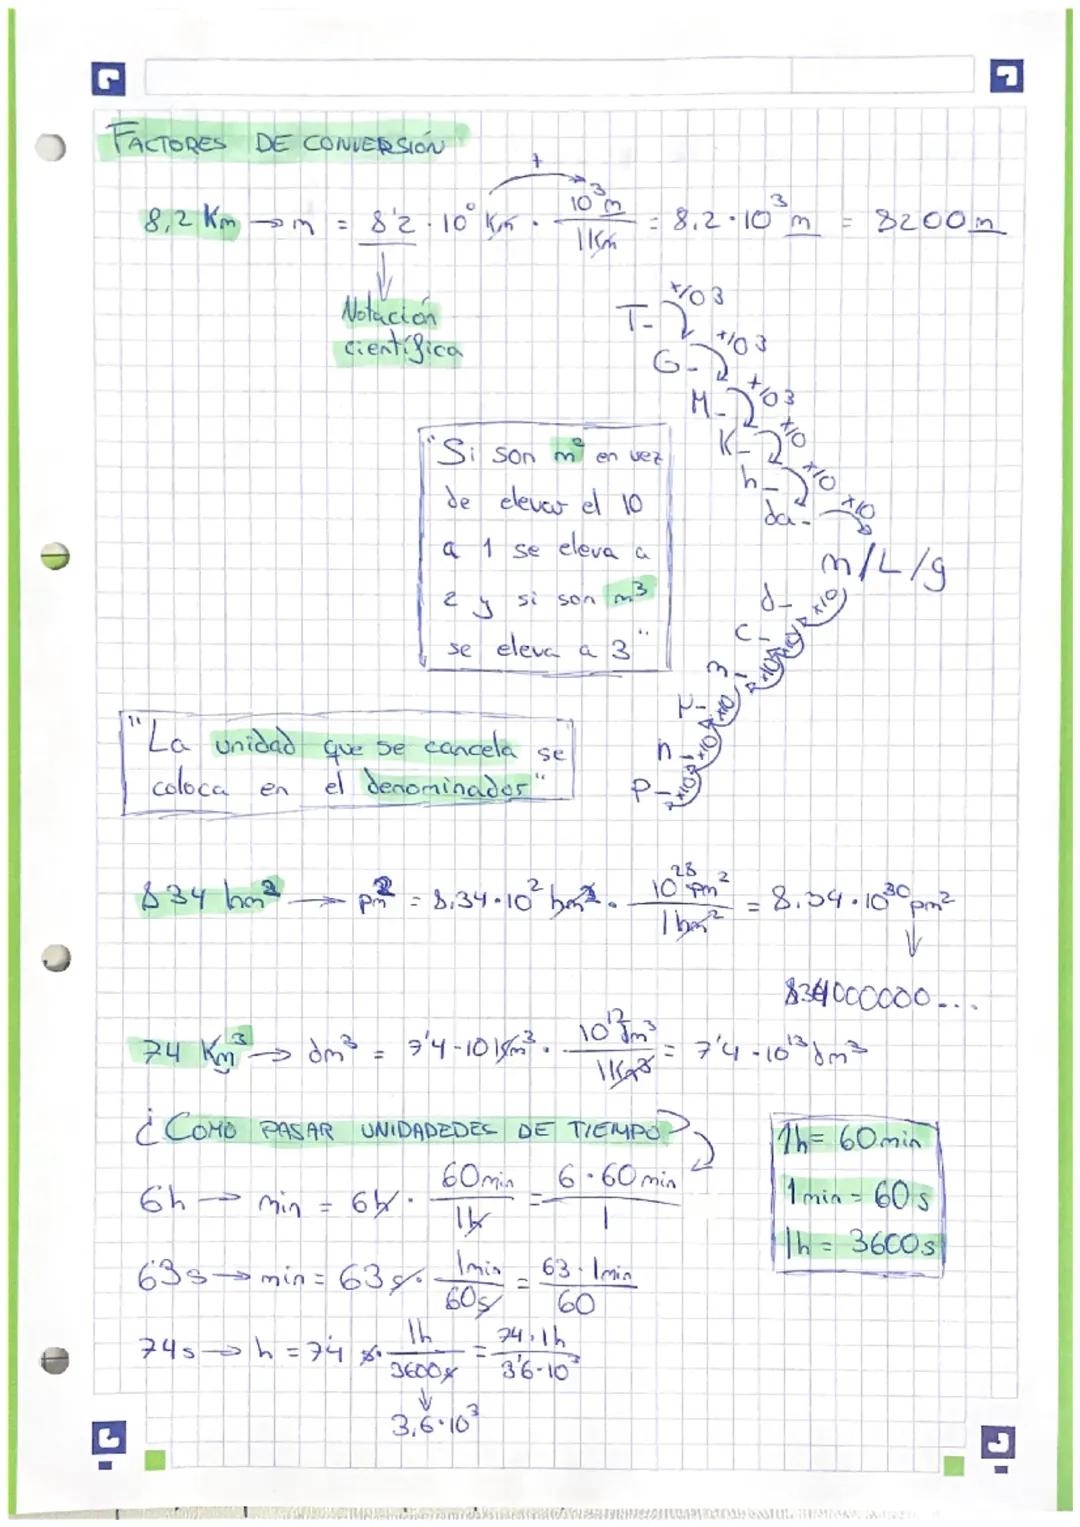 FACTORES DE CONVERSIÓN
8,2 Km → m = 8'2 · 10⁰ Km · 10³ m / 1 Km = 8,2 · 10³ m = 8200 m
Notación
científica
T- x10 3
G- x10 3
M- x10 3
K- x10
h- x10
da- x10
m/L/g
d- x10
c- x10
m- x10
μ- x10
n- x10
p- x10
"Si son m² en vez
de elevar el 10
a 1 se eleva a
2 y si son m³
se eleva a 3"
"La unidad que se cancela se
coloca en el denominador"
834 hm² → pm² = 8,34 · 10² hm² · 10²⁸ pm² / 1 hm² = 8,34 · 10³⁰ pm²
834000000...
74 Km³ → dm³ = 7'4 · 10 Km³ · 10¹² dm³ / 1 Km³ = 7'4 · 10¹³ dm³
¿COMO PASAR UNIDADEDES DE TIEMPO?
6h → min = 6h · 60min / 1h = 6 · 60 min / 1
63s → min = 63s · 1min / 60s = 63 · 1min / 60
74s → h = 74 s · 1h / 3600s = 74 · 1h / 3'6 · 10³
3,6 · 10³
1h = 60min
1min = 60s
1h = 3600s